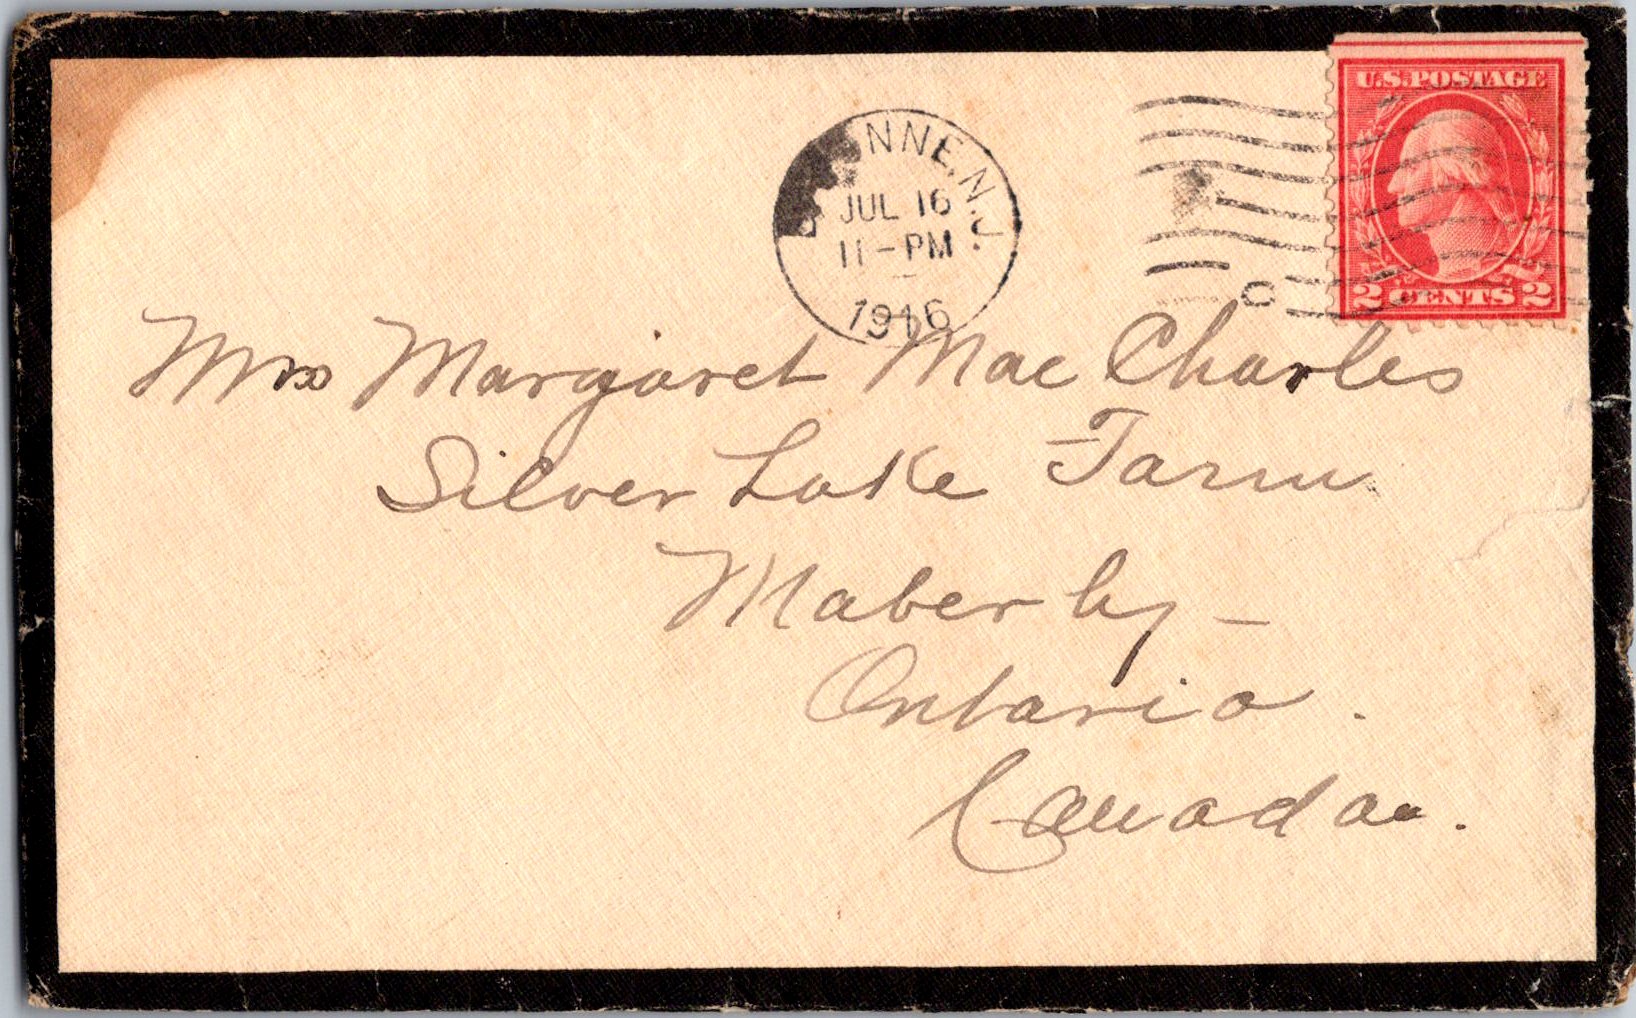 U.S. POSTAGE
BAYONNE, N.J.
JUL 16
11-PM
1916
2 CENTS 2
Mrs Margaret Mac Charles
Silver Lake Farm
Maberly -
Ontario.
Canada.